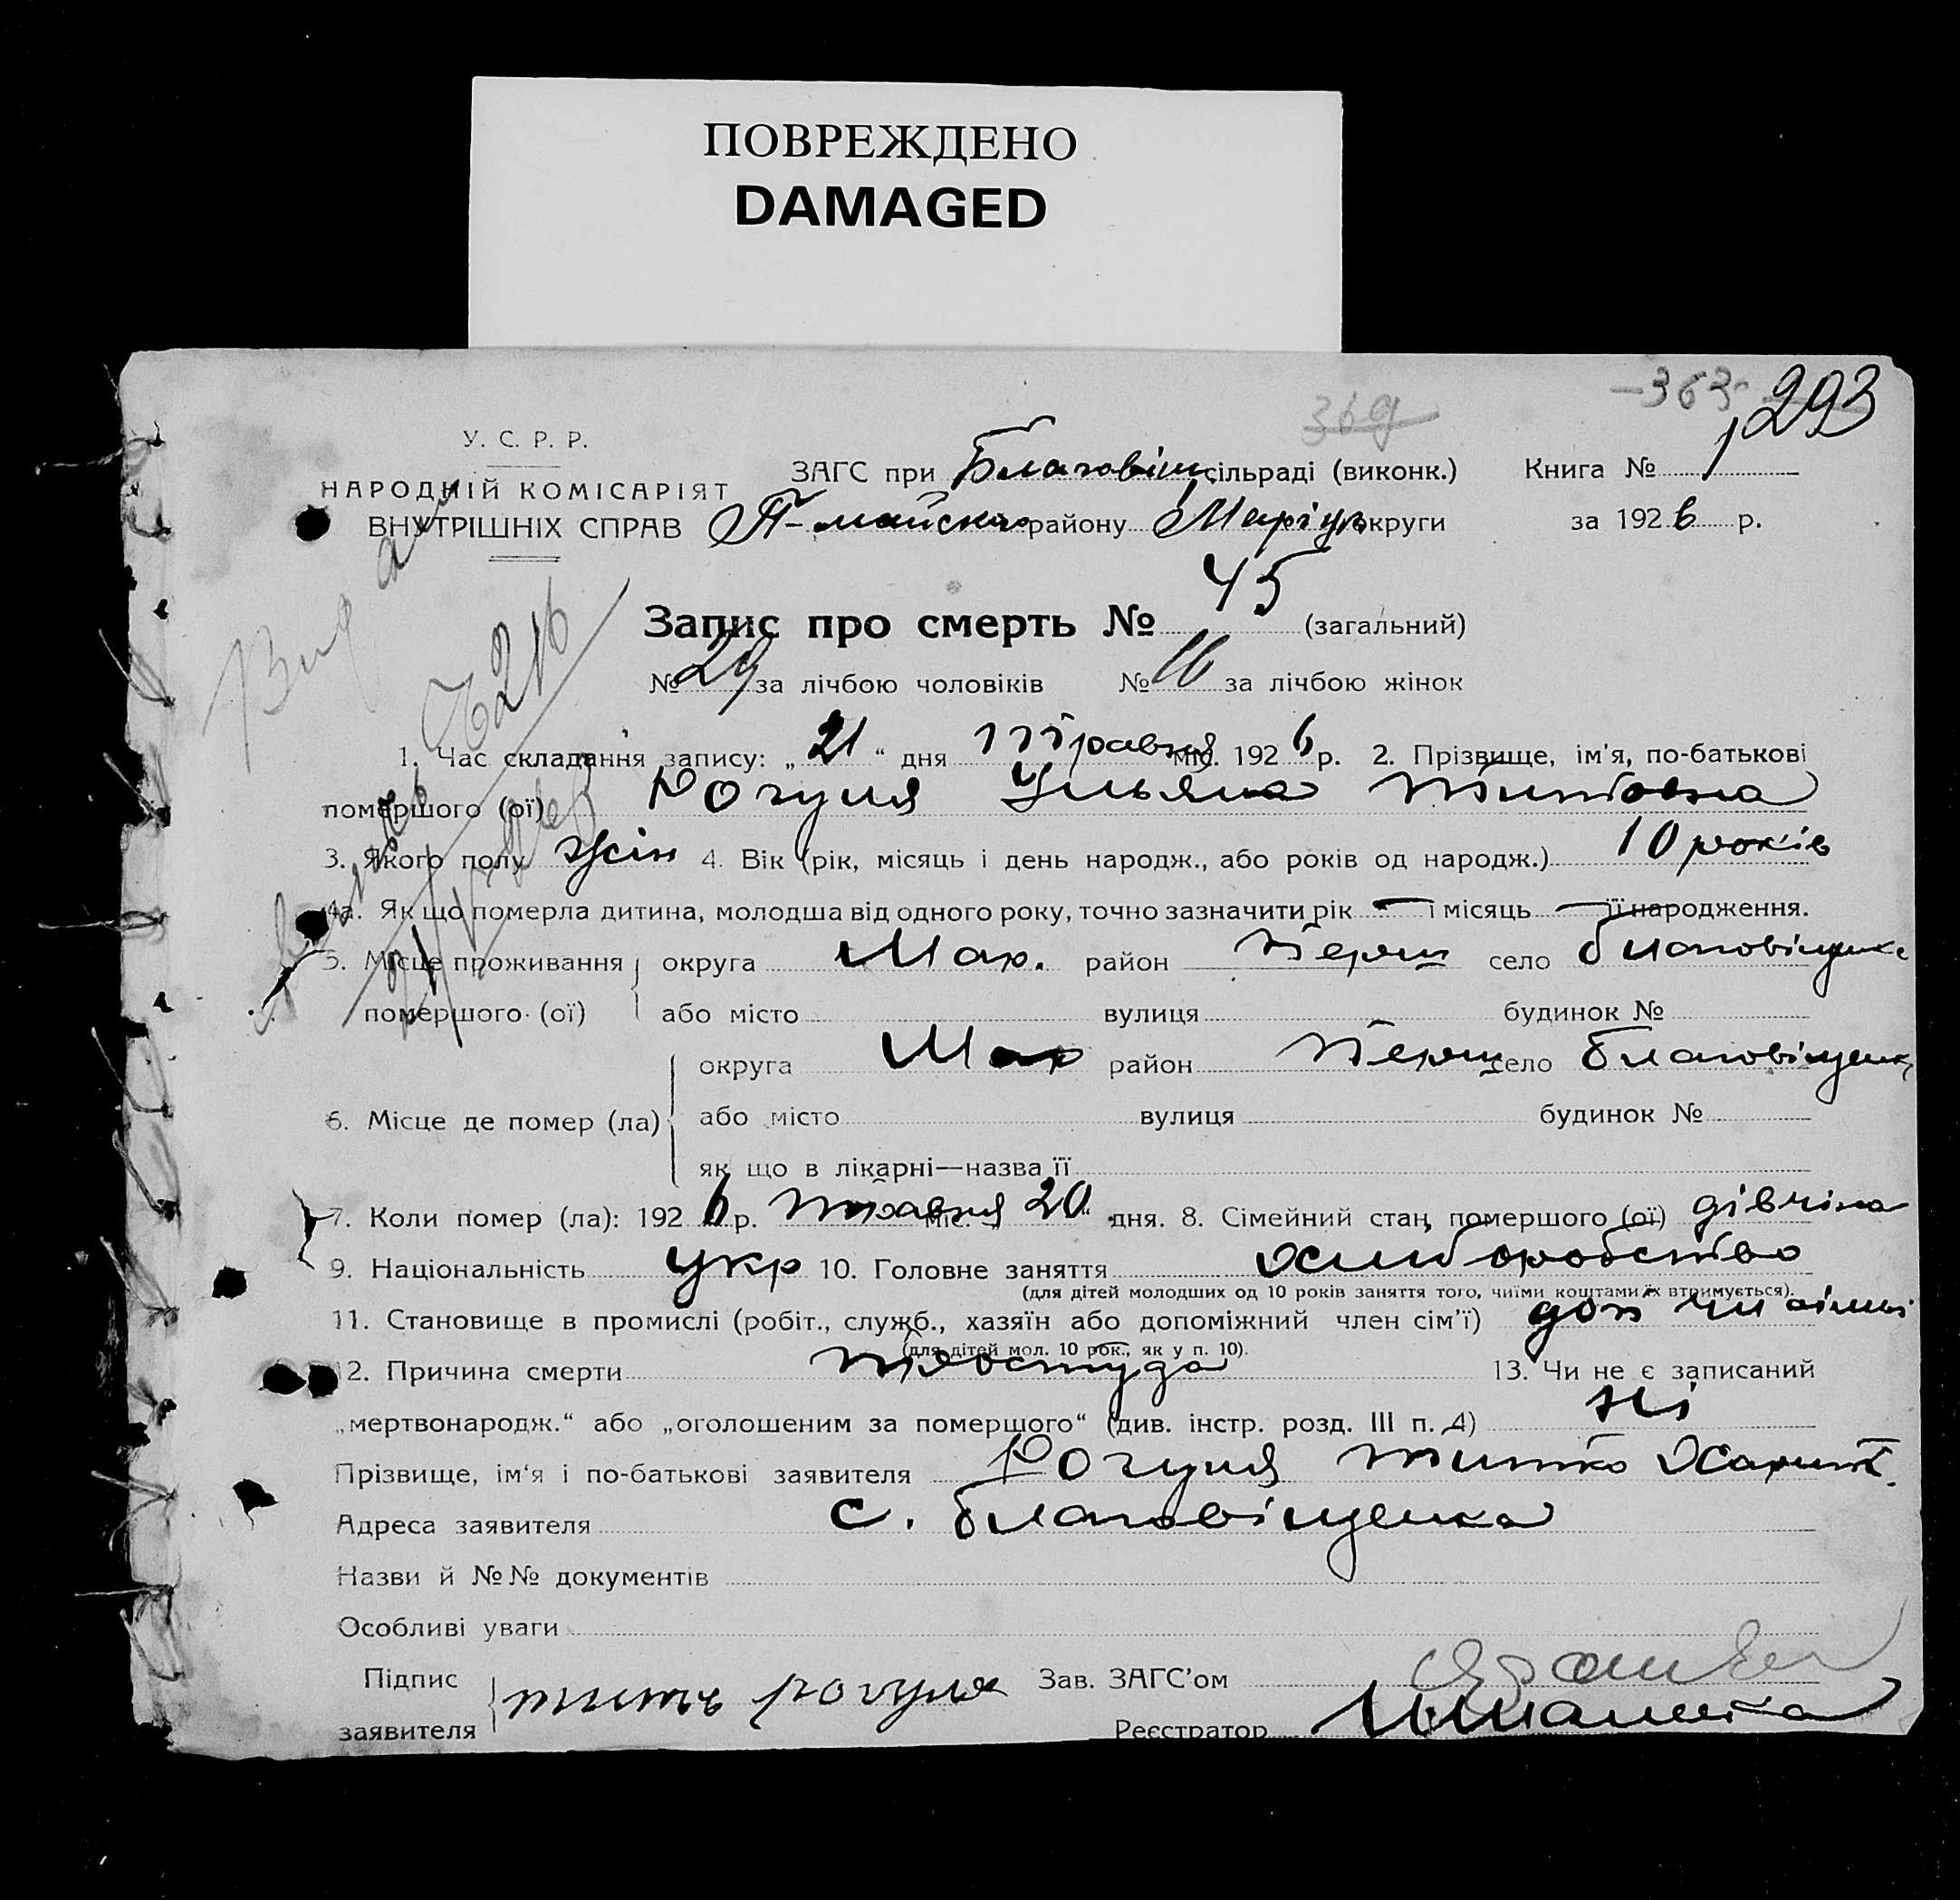 ПОВРЕЖДЕНО
DAMAGED
369
-363-
293
У. С. Р. Р.
НАРОДНІЙ КОМІСАРІЯТ
ВНУТРІШНІХ СПРАВ
ЗАГС при Благовіщ сільраді (виконк.) Книга № 1
П-майсько району Маріуп округи за 1926 р.
Запис про смерть № 45 (загальний)
№ 29 за лічбою чоловіків № 16 за лічбою жінок
1. Час складання запису: „21“ дня Травня міс. 1926 р. 2. Прізвище, ім'я, по-батькові
помершого (ої) Рогуля Ульяна Титовна
3. Якого полу жін 4. Вік (рік, місяць і день народж., або років од народж.) 10 років
4а. Як що померла дитина, молодша від одного року, точно зазначити рік — і місяць — її народження.
5. Місце проживання помершого (ої) округа Мар. район Перш село благовіщенка
або місто вулиця будинок №
6. Місце де помер (ла) округа Мар район Перш село благовіщенк
або місто вулиця будинок №
як що в лікарні—назва її
7. Коли помер (ла): 1926 р. травня міс. „20“ дня. 8. Сімейний стан помершого (ої) дівчина
9. Національність укр 10. Головне заняття хлиборобство
(для дітей молодших од 10 років заняття того, чиїми коштами їх втримується).
11. Становище в промислі (робіт., служб., хазяїн або допоміжний член сім'ї) доп
(для дітей мол. 10 рок., як у п. 10).
12. Причина смерти простуда 13. Чи не є записаний
„мертвонародж.“ або „оголошеним за помершого“ (див. інстр. розд. III п. 4) Ні
Прізвище, ім'я і по-батькові заявителя Рогуля Титко Харит.
Адреса заявителя с. благовіщенка
Назви й №№ документів
Особливі уваги
Підпис заявителя титъ рогуля Зав. ЗАГС'ом
Реєстратор